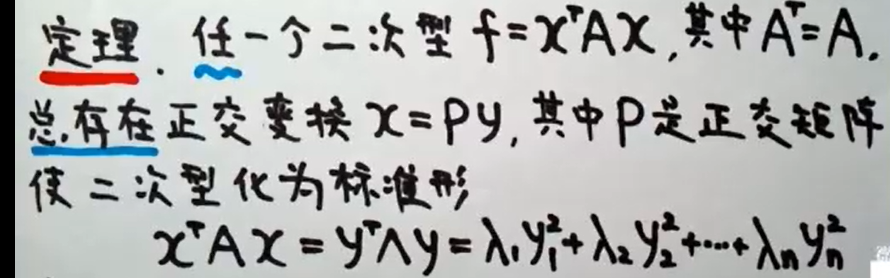 定理. 任一个二次型 f=xᵀAx, 其中 Aᵀ=A.
总存在正交变换 x=Py, 其中P是正交矩阵
使二次型化为标准形
xᵀAx = yᵀΛy = λ₁y₁²+λ₂y₂²+⋯+λₙyₙ²